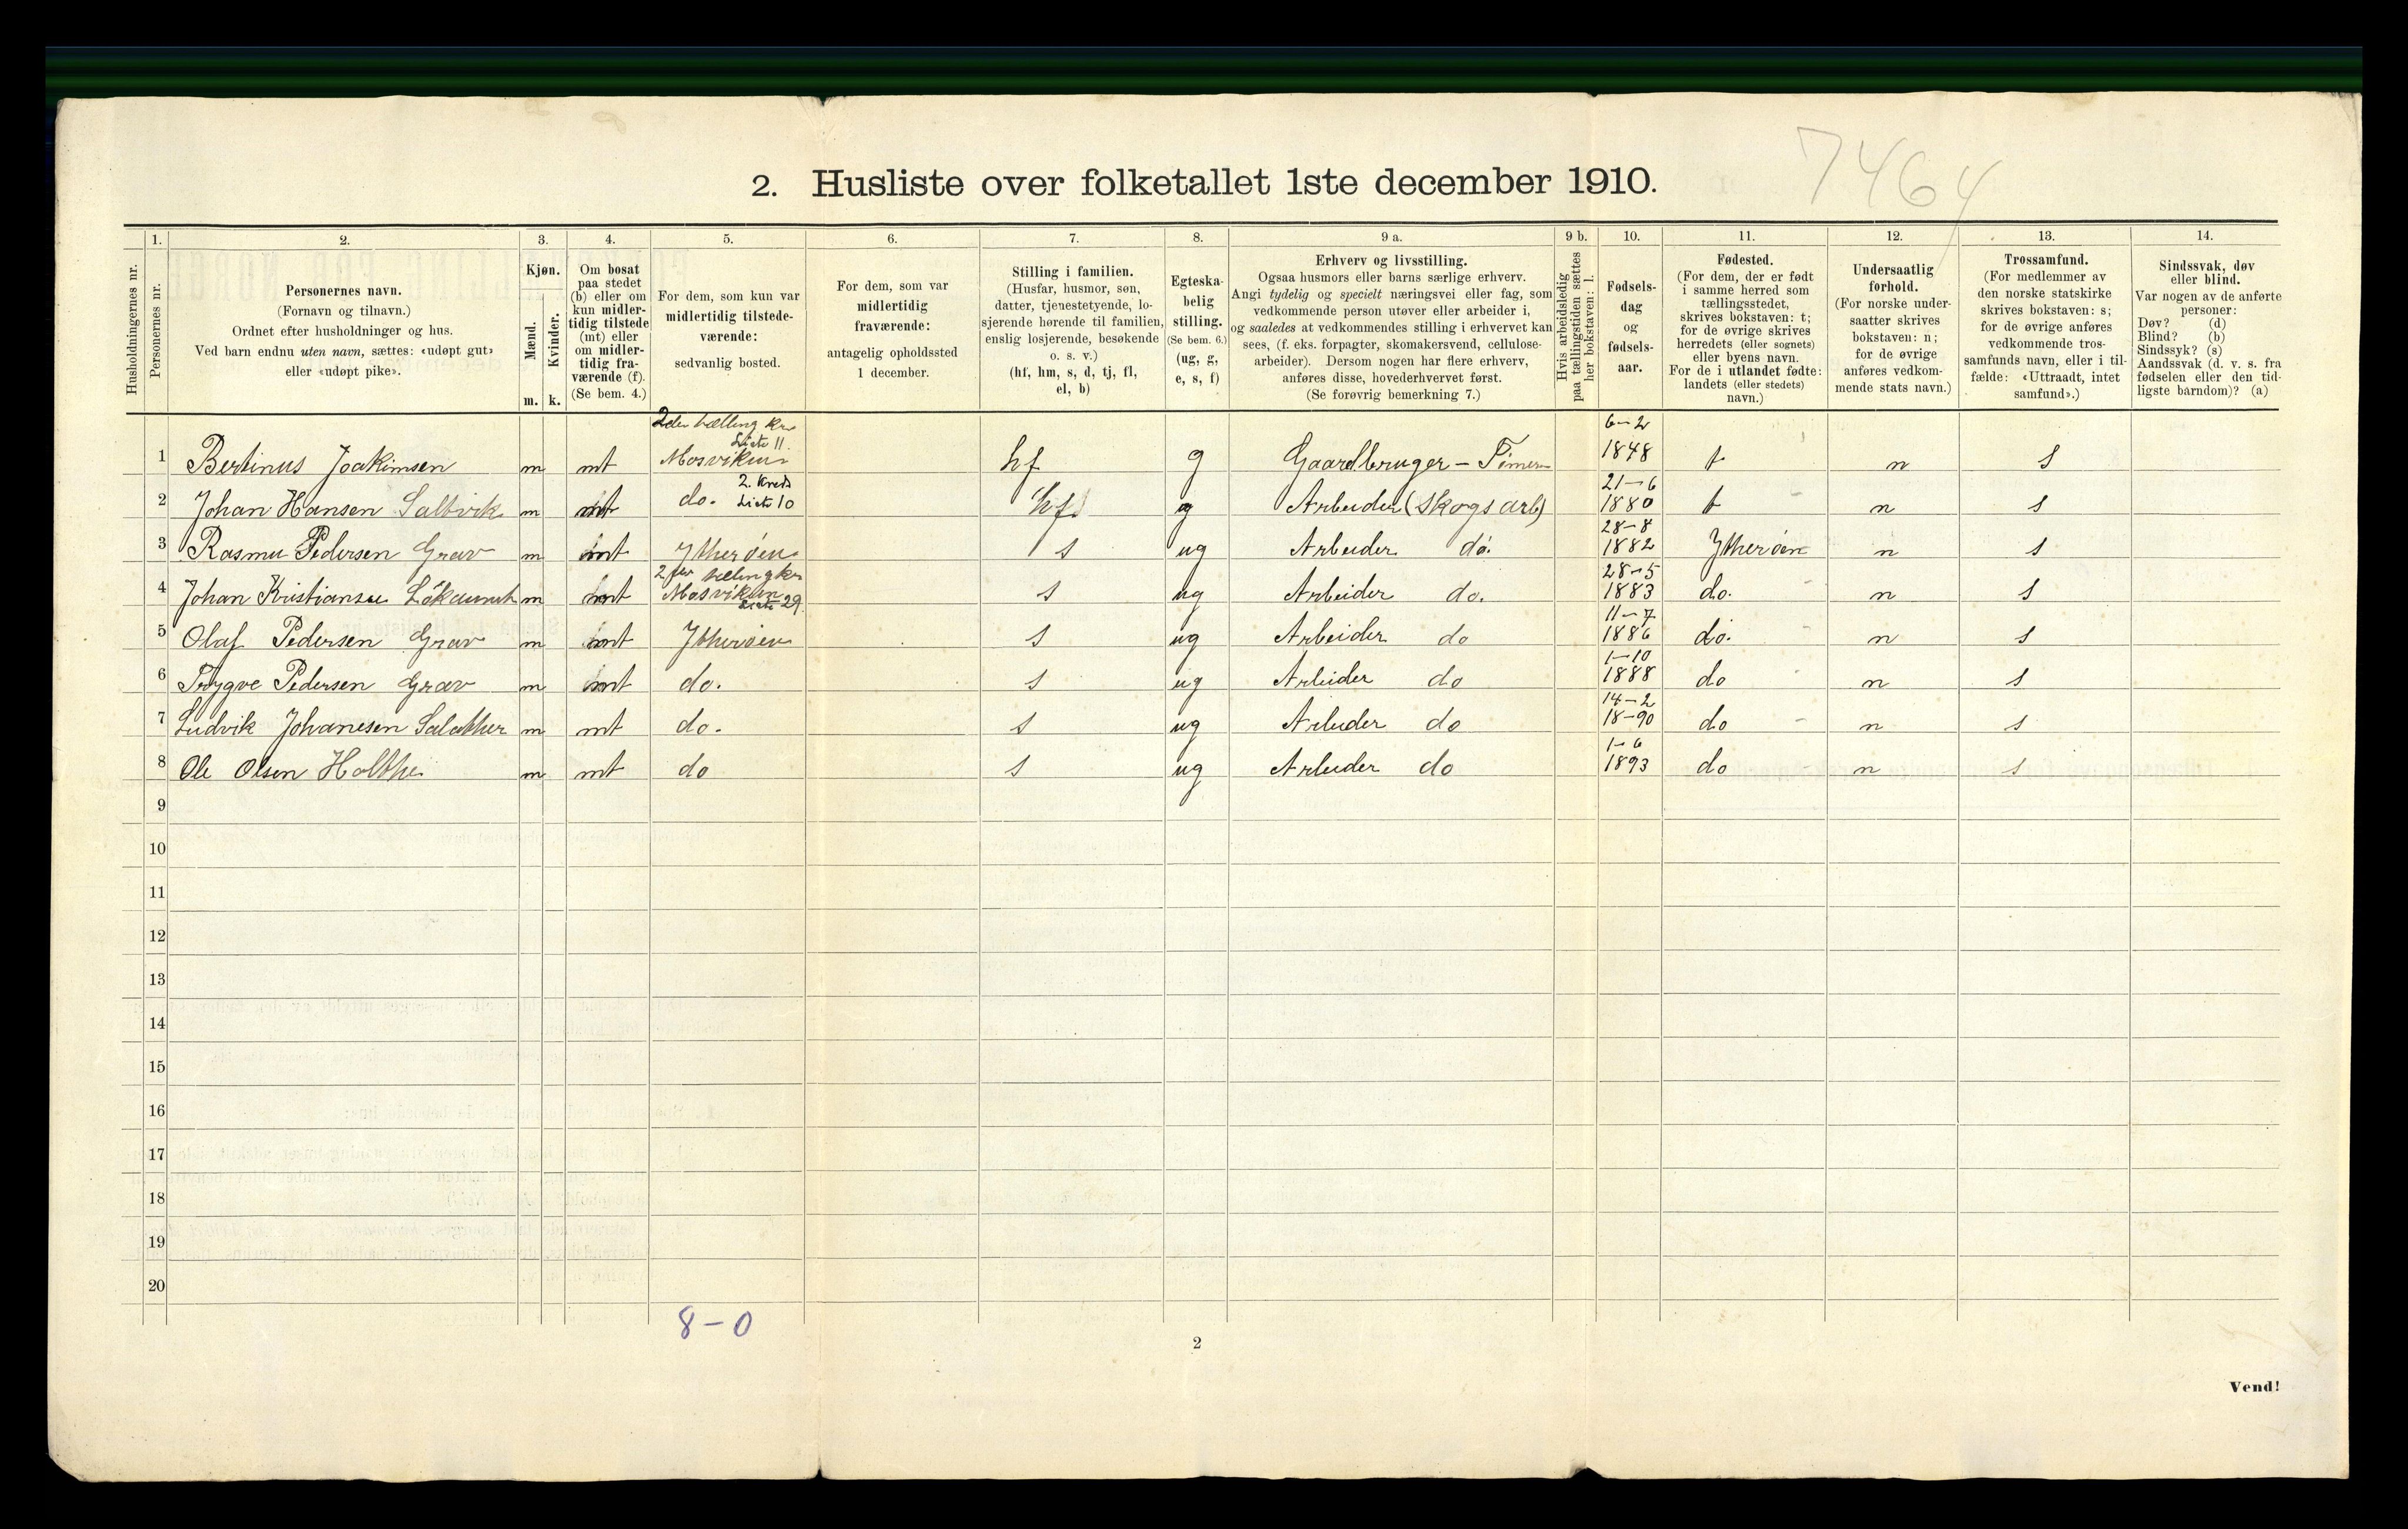 7464
2. Husliste over folketallet 1ste december 1910.
Husholdningernes nr.
1.
Personernes nr.
2.
Personernes navn.
(Fornavn og tilnavn.)
Ordnet efter husholdninger og hus.
Ved barn endnu uten navn, sættes: «udøpt gut»
eller «udøpt pike».
3.
Kjøn.
Mænd.
Kvinder.
m. k.
4.
Om bosat
paa stedet
(b) eller om
kun midler-
tidig tilstede
(mt) eller
om midler-
tidig fra-
værende (f).
(Se bem. 4.)
5.
For dem, som kun var
midlertidig tilstede-
værende:
sedvanlig bosted.
6.
For dem, som var
midlertidig
fraværende:
antagelig opholdssted
1 december.
7.
Stilling i familien.
(Husfar, husmor, søn,
datter, tjenestetyende, lo-
sjerende hørende til familien,
enslig losjerende, besøkende
o. s. v.)
(hf, hm, s, d, tj, fl,
el, b)
8.
Egteska-
belig
stilling.
(Se bem. 6.)
(ug, g,
e, s, f)
9 a.
Erhverv og livsstilling.
Ogsaa husmors eller barns særlige erhverv.
Angi tydelig og specielt næringsvei eller fag, som
vedkommende person utøver eller arbeider i,
og saaledes at vedkommendes stilling i erhvervet kan
sees, (f. eks. forpagter, skomakersvend, cellulose-
arbeider). Dersom nogen har flere erhverv,
anføres disse, hovederhvervet først.
(Se forøvrig bemerkning 7.)
9 b.
Hvis arbeidsledig
paa tællingstiden sættes
her bokstaven: l.
10.
Fødsels-
dag
og
fødsels-
aar.
11.
Fødested.
(For dem, der er født
i samme herred som
tællingsstedet,
skrives bokstaven: t;
for de øvrige skrives
herredets (eller sognets)
eller byens navn.
For de i utlandet fødte:
landets (eller stedets)
navn.)
12.
Undersaatlig
forhold.
(For norske under-
saatter skrives
bokstaven: n;
for de øvrige
anføres vedkom-
mende stats navn.)
13.
Trossamfund.
(For medlemmer av
den norske statskirke
skrives bokstaven: s;
for de øvrige anføres
vedkommende tros-
samfunds navn, eller i til-
fælde: «Uttraadt, intet
samfund».)
14.
Sindssvak, døv
eller blind.
Var nogen av de anførte
personer:
Døv? (d)
Blind? (b)
Sindssyk? (s)
Aandssvak (d. v. s. fra
fødselen eller den tid-
ligste barndom)? (a)
2den tælling kr Liste 11. 6-2
1 Bertinus Joakimsen m mt Mosviken hf g Gaardbruger - Timer 1848 t n s
2. Kreds 21-6
2 Johan Hansen Saltvik m mt do. Liste 10 hf g Arbeider (Skogsarb) 1880 t n s
28-8
3 Rasmu Pedersen Grav m mt Ytherøen s ug Arbeider do. 1882 Ytherøen n s
28-5
4 Johan Kristiansen m mt Mosviken Liste 29 s ug Arbeider do. 1883 do. n s
11-7
5 Olaf Pedersen Grav m mt Ytherøen s ug Arbeider do 1886 do. n s
1-10
6 Trygve Pedersen Grav m mt do. s ug Arbeider do 1888 do n s
14-2
7 Ludvik Johanesen m mt do. s ug Arbeider do 18-90 do n s
1-6
8 Ole Olsen Holthe m mt do s ug Arbeider do 1893 do n s
9
10
11
12
13
14
15
16
17
18
19
20
8-0
2
Vend!